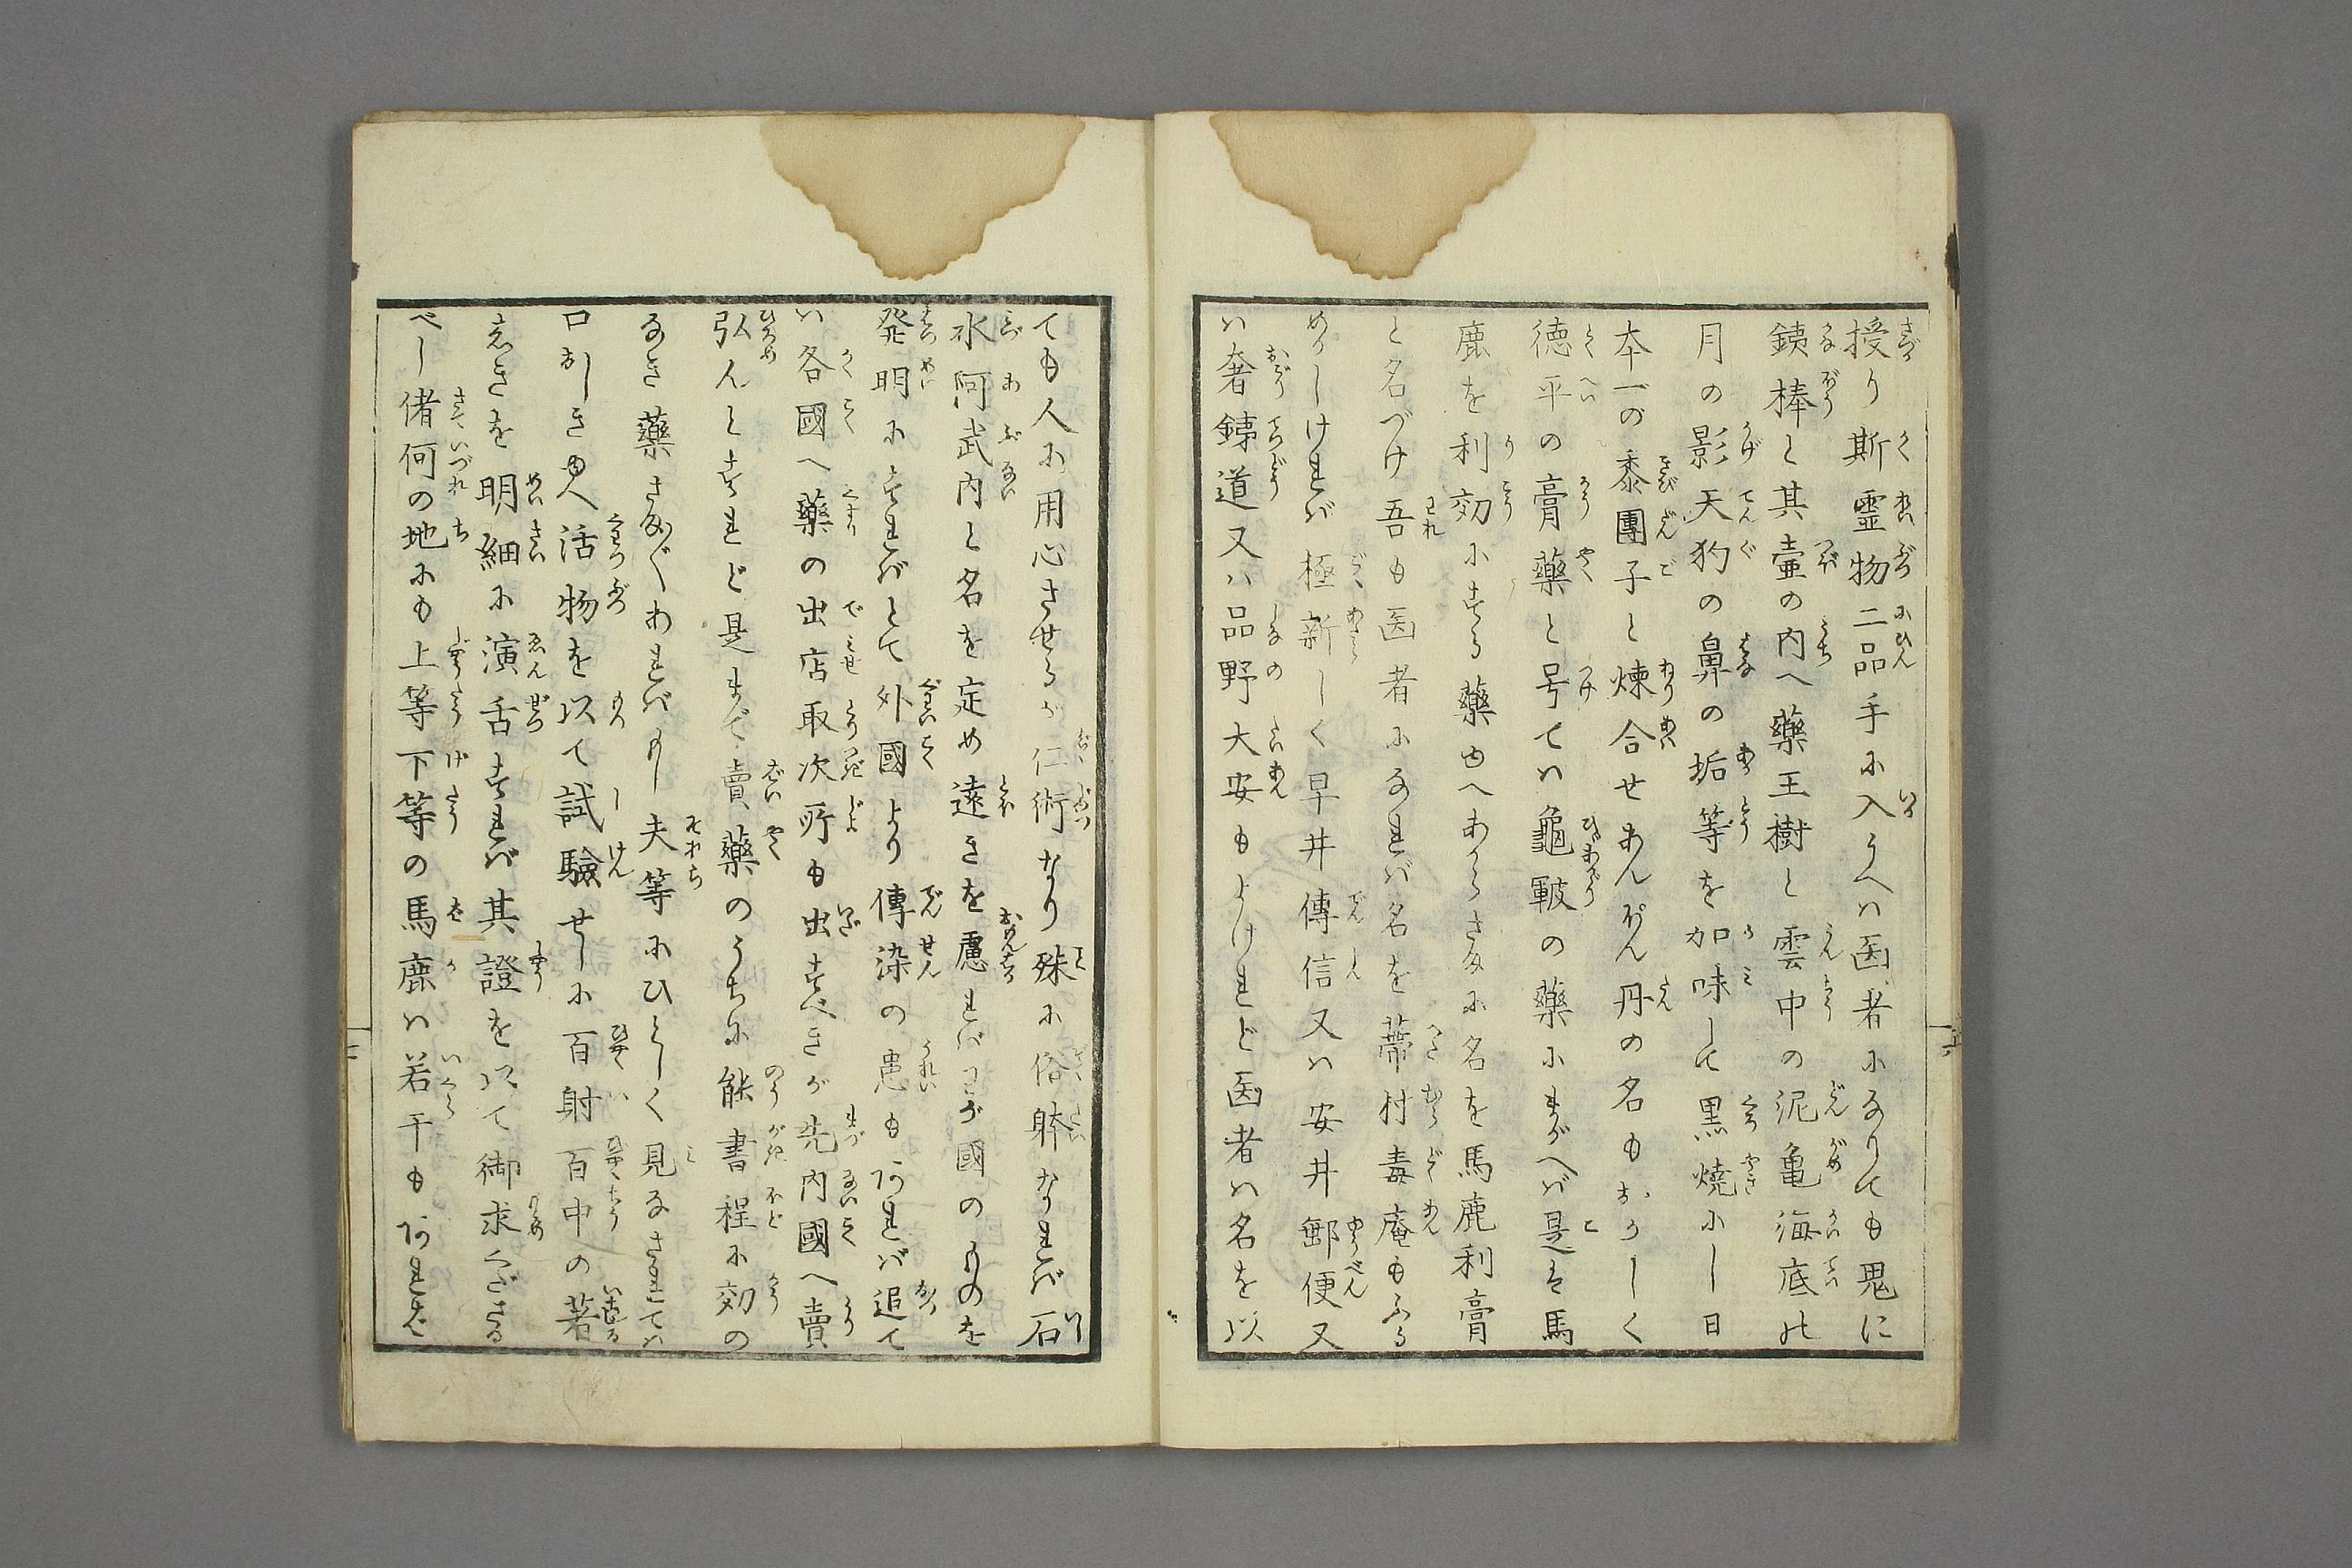 授り斯霊物二品手に入うへハ医者になりても鬼に
銕棒と其壷の内へ藥王樹と雲中の泥亀海底の
月の影天狗の鼻の垢等を加味して黒焼にし日
本一の黍團子と煉合せあんぽん丹の名もおかしく
徳平の膏藥と号てハ龜皸の藥にまがへバ是を馬
鹿を利効にする藥ゆへあからさまに名を馬鹿利膏
と名づけ吾も医者になれバ名を蔕村毒庵もふる
めかしけれバ極新しく早井傳信又ハ安井郵便又
ハ奢銕道又ハ品野大安もよけれど医者ハ名を以
ても人に用心させるが仁術なり殊に俗躰なれバ石
水阿武内と名を定め遠きを慮れバわが國のものを
発明にすれバとて外國より傳染の患もあれバ追て
ハ各國へ藥の出店取次所も出すべきが先内國へ賣
弘んとすれど是まで賣藥のうちに能書程に効の
なき藥さまざまあれバもし夫等にひとしく見なされてハ
口おしきゆへ活物を以て試驗せしに百射百中の著
きを明細に演舌すれバ其證を以て御求くださる
べし偖何の地にも上等下等の馬鹿ハ若干もあれど